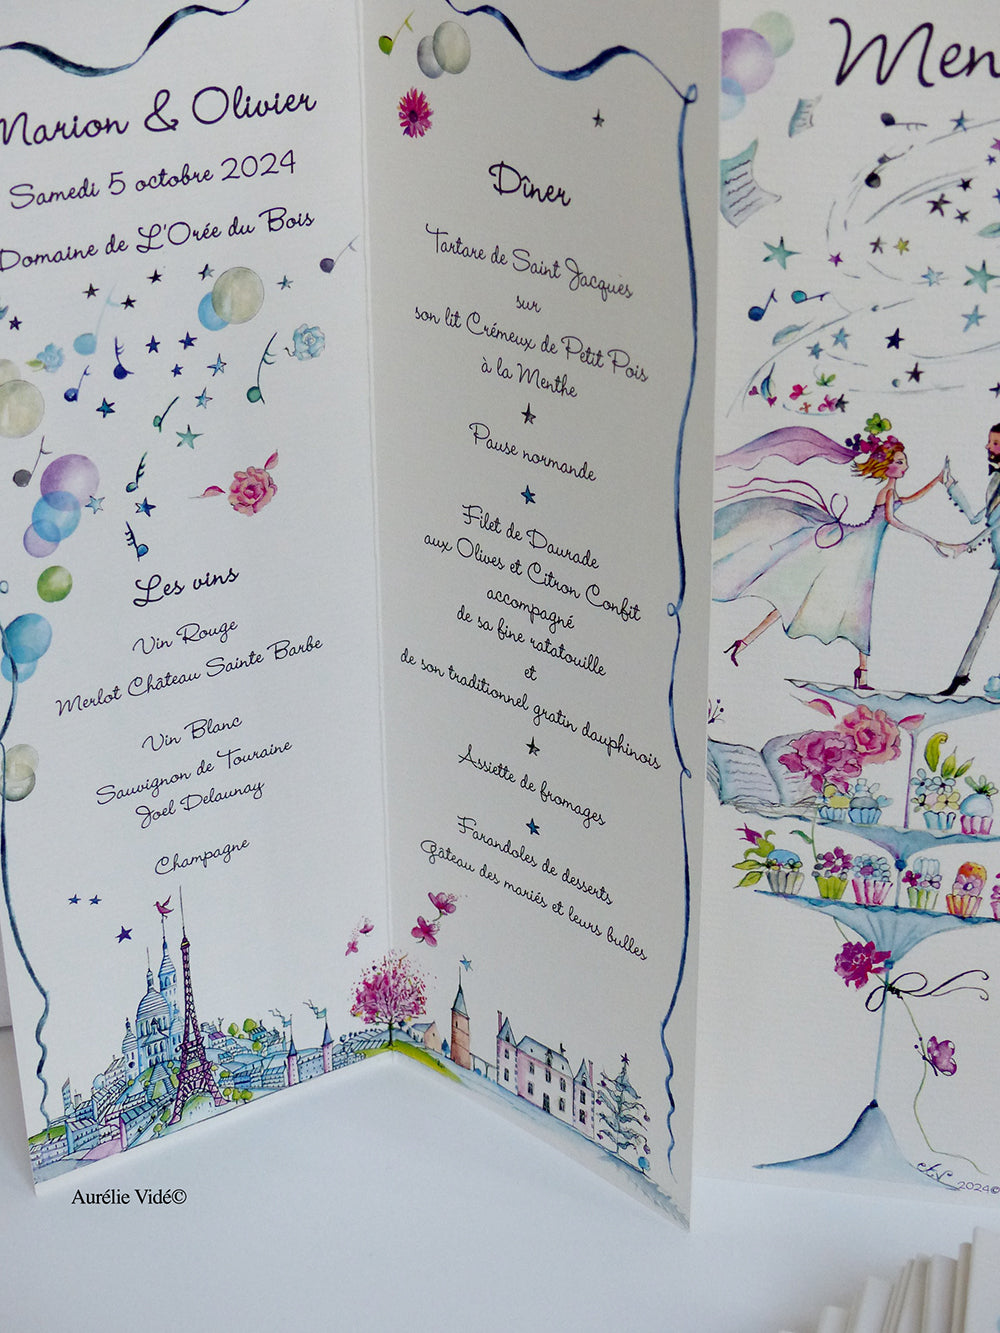 Marion & Olivier
Samedi 5 octobre 2024
Domaine de L'Orée du Bois
Les vins
Vin Rouge
Merlot Château Sainte Barbe
Vin Blanc
Sauvignon de Touraine
Joel Delaunay
Champagne
Dîner
Tartare de Saint Jacques
sur
son lit Crémeux de Petit Pois
à la Menthe
Pause normande
Filet de Daurade
aux Olives et Citron Confit
accompagné
de sa fine ratatouille
et
de son traditionnel gratin dauphinois
Assiette de fromages
Farandoles de desserts
Gâteau des mariés et leurs bulles
Men
2024©
Aurélie Vidé©